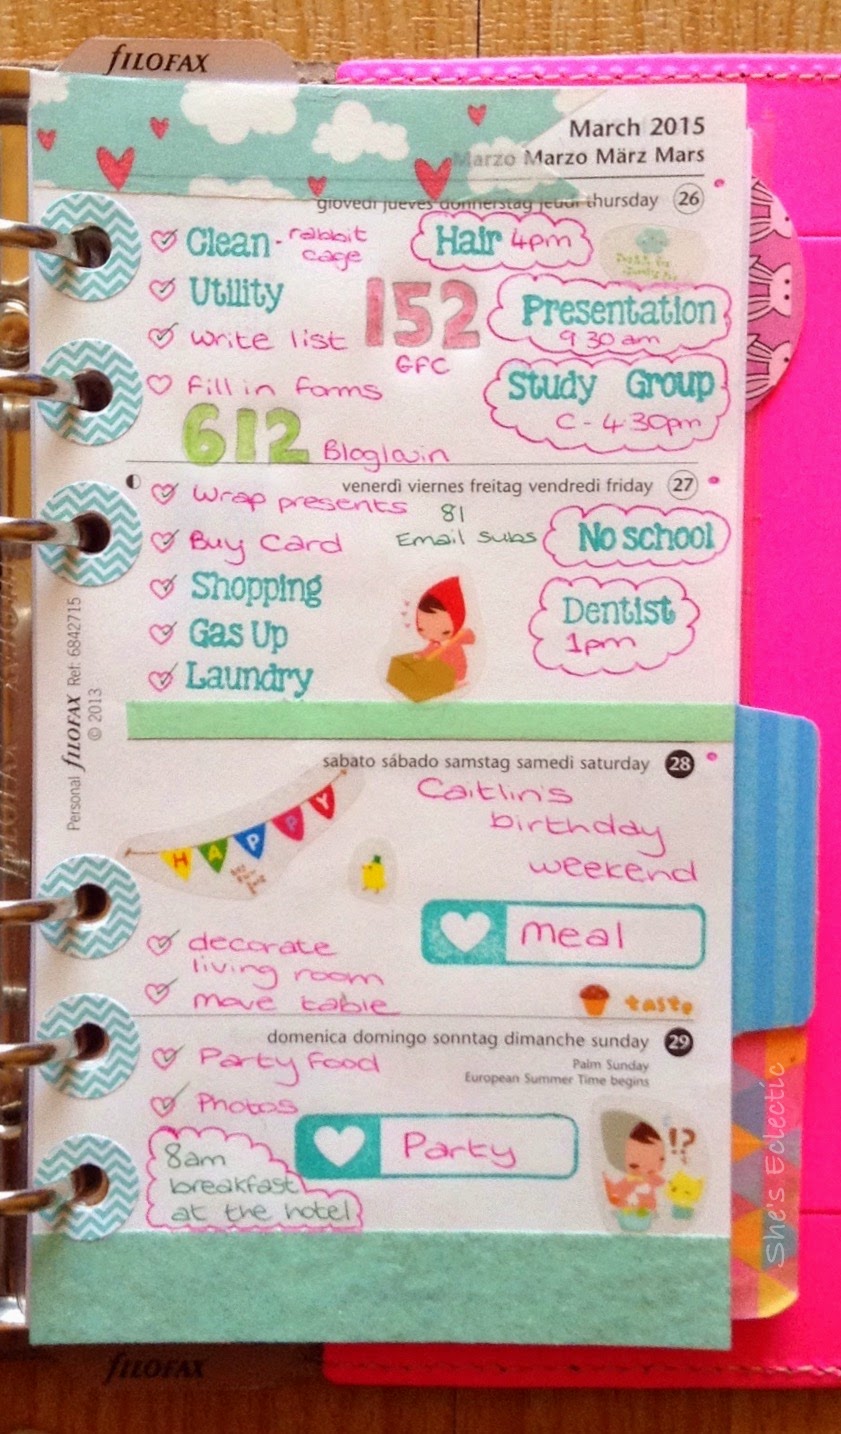 fILOFAX
March 2015
Marzo Marzo März Mars
giovedì jueves donnerstag jeudi thursday 26
Clean - rabbit cage
Hair 4pm
Utility
152
GFC
Presentation
9 30 am
write list
Fill in forms
Study Group
C - 4.30pm
612 Bloglovin
venerdì viernes freitag vendredi friday 27
Wrap presents
81
Email subs
No school
Buy Card
Shopping
Dentist
1pm
Gas Up
Laundry
Personal fILOFAX Ref: 6842715
© 2013
sabato sábado samstag samedi saturday 28
Caitlin's
birthday
weekend
HAPPY
meal
decorate
living room
move table
taste
domenica domingo sonntag dimanche sunday 29
Palm Sunday
European Summer Time begins
Party Food
Photos
Party
!?
8am
breakfast
at the hotel
She's Eclectic
fILOFAX